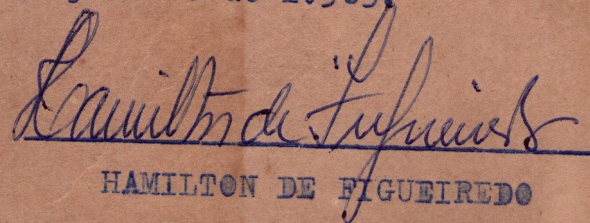 de 1.963.
Hamilton de Figueiredo
HAMILTON DE FIGUEIREDO